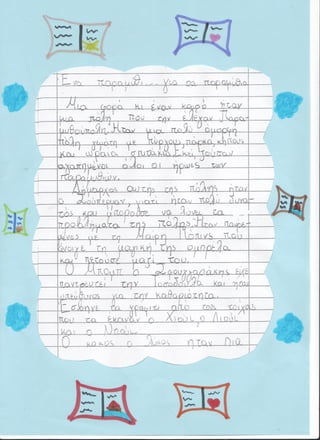 Ένα παραμύθι... για τα παραμύθια
Μια φορά κι έναν καιρό ήταν
μια πόλη που την έλεγαν Παρα-
μυθούπολη. Ήταν μια πολύ όμορφη
πόλη γεμάτη με πύργους, πάρκα, κήπους
και ωραία σπιτάκια. Εκεί ζούσαν
αγαπημένοι όλοι οι ήρωες των
παραμυθιών.
Δήμαρχος αυτής της πόλης ήταν
ο Σούπερμαν, γιατί ήταν πολύ δυνα-
τός και μπορούσε να λύνει τα
προβλήματα της πόλης. Ήταν παντρε-
μένος με τη Μαίρη Πόπινς που
άνοιγε τη μαγική της ομπρέλα
και πετούσε μαζί του.
Ο Μπομπ ο Σφουγγαράκης είχε
παντρευτεί την Τοσοδούλα και ήταν
υπεύθυνος για την καθαριότητα.
Έσβηνε τα γκράφιτι από τους τοίχους
που τα έκαναν ο Χιούι, ο Λιούι
και ο Ντιούι.
Ο κακός ο λύκος ήταν πια